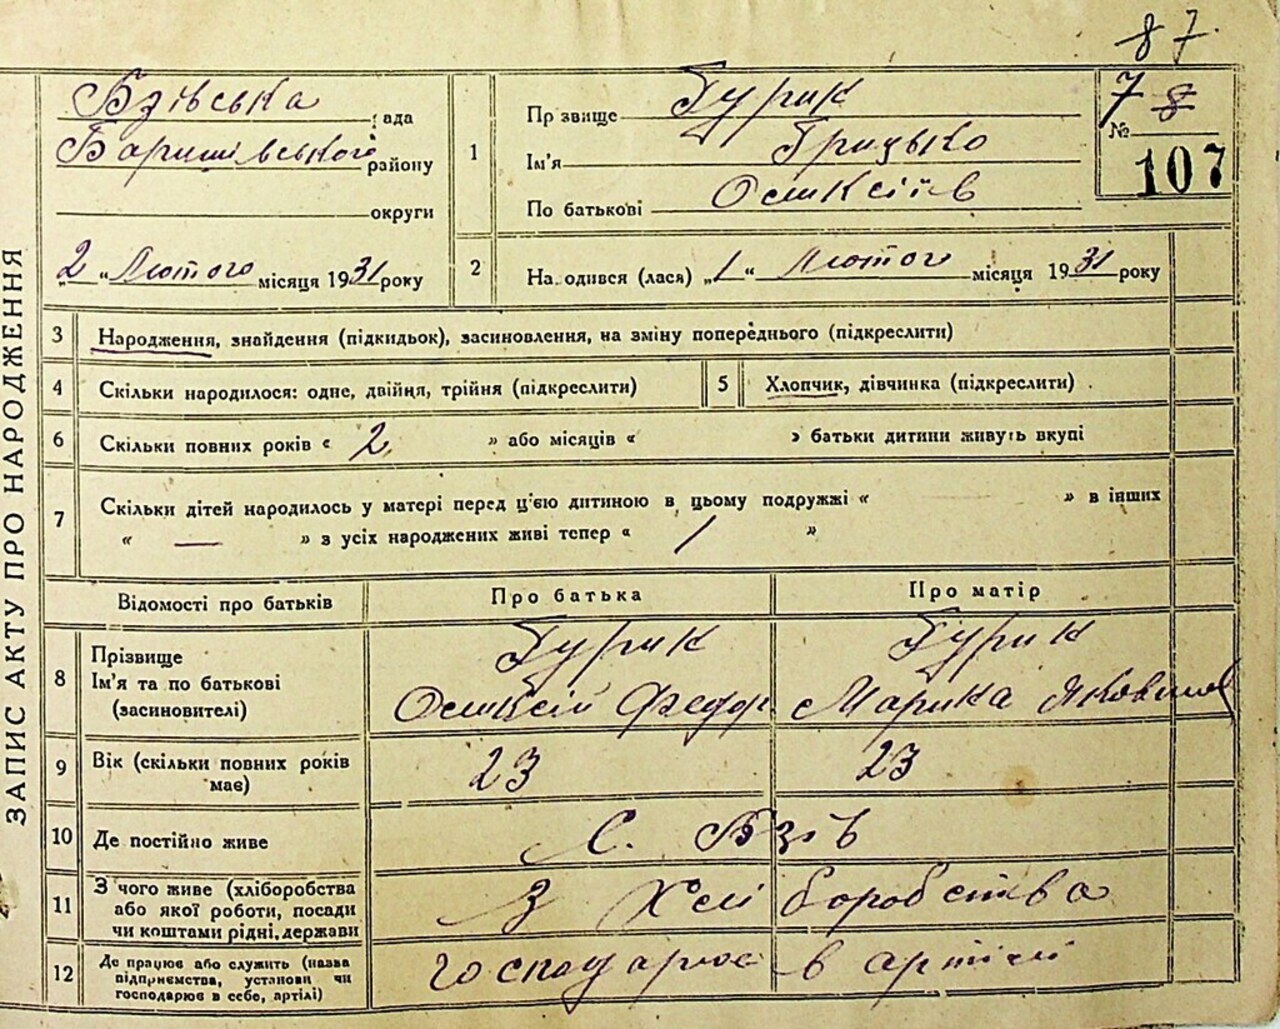 87
ЗАПИС АКТУ ПРО НАРОДЖЕННЯ
Бзівська рада
Баришівського району
округи
„2“ Лютого місяця 1931 року
1
Прізвище Гурик
Ім'я Грицько
По батькові Олексіїв
7 8
№
107
2
Народився (лася) „1“ Лютого місяця 1931 року
3 Народження, знайдення (підкидьок), засиновлення, на зміну попереднього (підкреслити)
4 Скільки народилося: одне, двійня, трійня (підкреслити)
5 Хлопчик, дівчинка (підкреслити)
6 Скільки повних років « 2 » або місяців « » батьки дитини живуть вкупі
7 Скільки дітей народилось у матері перед ц'єю дитиною в цьому подружжі « » в інших
« — » з усіх народжених живі тепер « 1 »
Відомості про батьків Про батька Про матір
8 Прізвище
Ім'я та по батькові
(засиновителі)
Гурик Гурик
Олексій Федор Марика Яковлев
9 Вік (скільки повних років
має)
23 23
10 Де постійно живе С. Бзів
11 З чого живе (хліборобства
або якої роботи, посади
чи коштами рідні, держави
З Хліборобства
12 Де працює або служить (назва
підприємства, установи чи
господарює в себе, артілі)
господарює в артілі